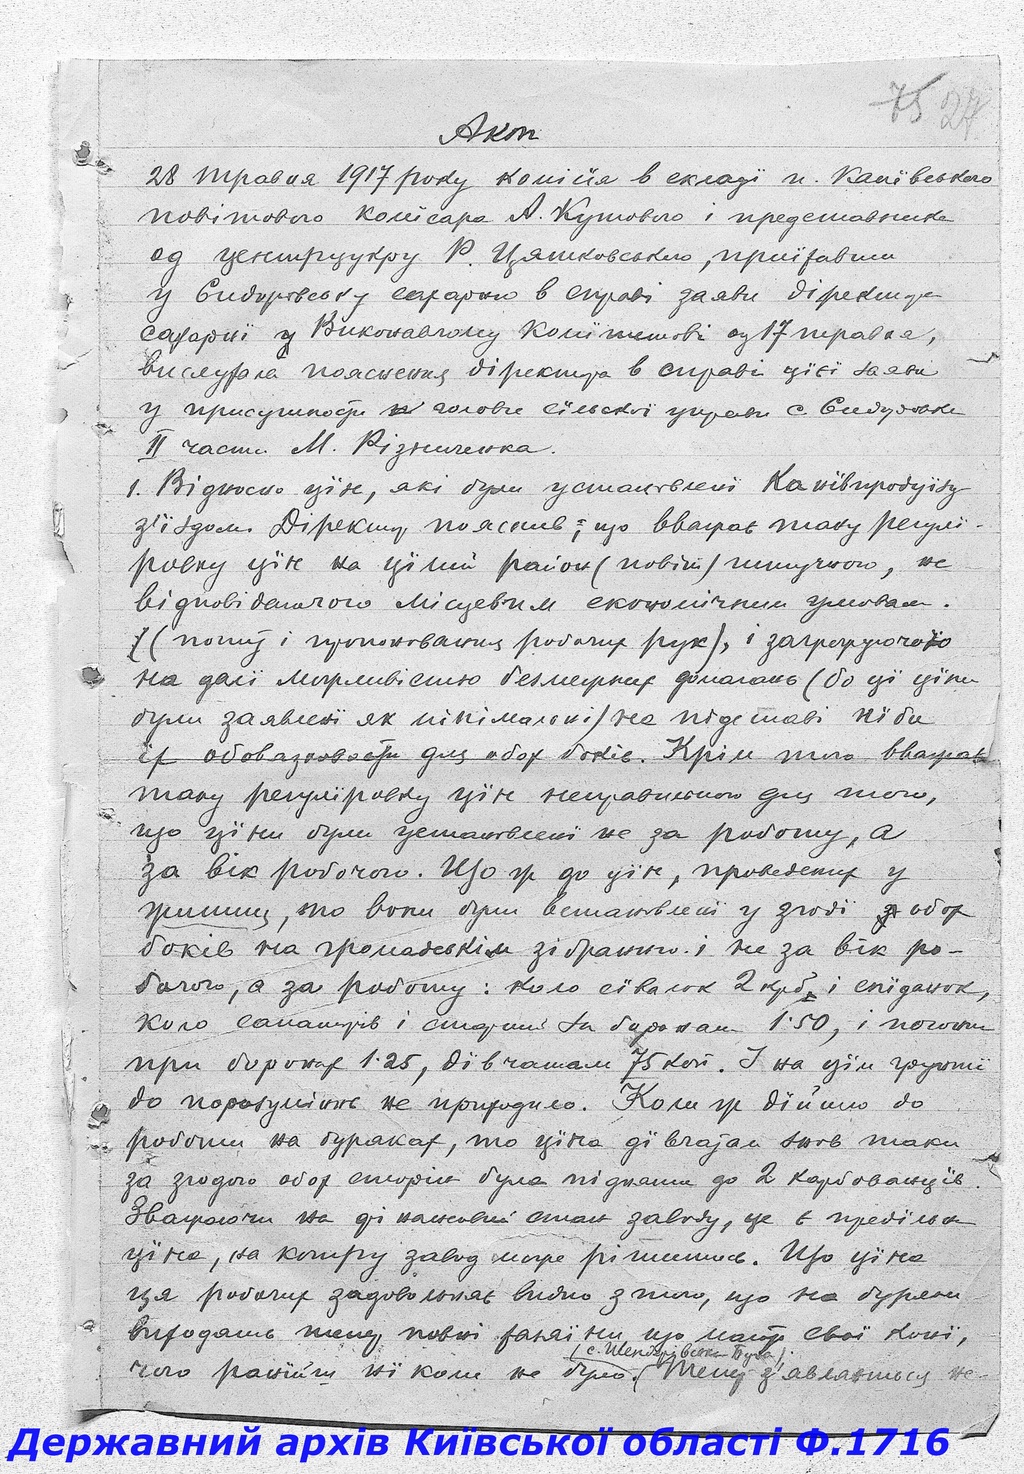 75 27
Акт
28 травня 1917 року комісія в складі п. Канівського
повітового комісара А. Кутового і представника
од центрцукру Р. Цяшковського, приїхавши
у Сидорівську сахарню в справі заяви діректора
сахарні у Виконавчому Комітетові од 17 травня,
вислухала пояснення діректора в справі цієї заяви
у присутности голови сільської управи с. Сидорівки
II части М. Різниченка.
1. Відносно цін, які були установлені
з'їздом. Діректор пояснив, що вважає таку регулі-
ровку цін на цілий район (повіт) штучною, не
відповідаючою місцевим економічним умовам.
(попит і пропоновання робочих рук), і загрожуючою
на далі можливістю безмежних домагань (бо ці ціни
були заявлені як мінімальні) на підставі ніби
їх обовязковости для обох боків. Крім того вважає
таку регуліровку цін неправильною для того,
що ціни були установлені не за роботу, а
за вік робочого. Що ж до цін, проведених у
життя, то вони були встановлені у згоді обох
боків на громадськім зібранню і не за вік ро-
бочого, а за роботу: коло сівалок 2 крб. і сніданок,
коло сапачів і старші за боронам 1·50, і погоничі
при боронах 1·25, дівчатам 75 коп. І на цім грунті
до порозуміннє не приходило. Коли ж дійшло до
роботи на буряках, то ціна дівчатам знов таки
за згодою обох сторін була піднята до 2 карбованців.
Зважаючи на фінансовий стан заводу, це є предільна
ціна, на котру завод може рішитись. Що ціна
ця робочих задовольняє видно з того, що на буряки
виходять тепер повні хазяїни, що мають свої коні,
чого раніш ніколи не було. (с. Шендерівська Бута). Тепер з'являються не-
Державний архів Київської області Ф.1716